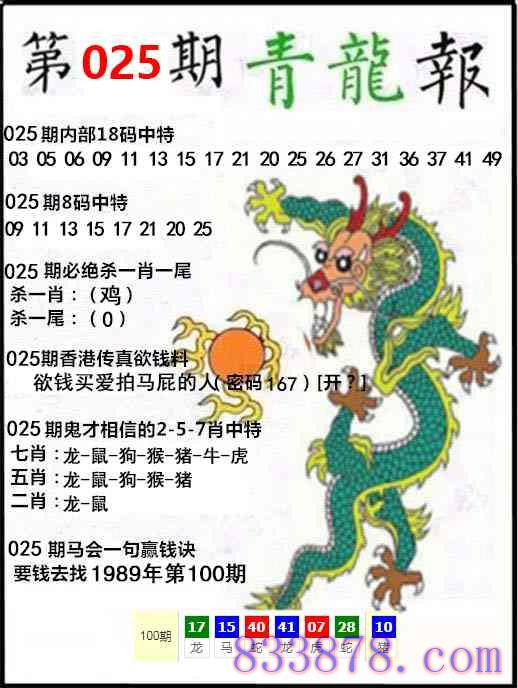 第025期青龍報
025期内部18码中特
03 05 06 09 11 13 15 17 21 20 25 26 27 31 36 37 41 49
025期8码中特
09 11 13 15 17 21 20 25
025 期必绝杀一肖一尾
杀一肖：（鸡）
杀一尾：（0）
025期香港传真欲钱料
欲钱买爱拍马屁的人(密码167）[开？]
025期鬼才相信的2-5-7肖中特
七肖：龙-鼠-狗-猴-猪-牛-虎
五肖：龙-鼠-狗-猴-猪
二肖：龙-鼠
025 期马会一句赢钱诀
要钱去找1989年第100期
100期 17 15 40 41 07 28 10
龙 马 蛇 龙 虎 蛇 猪
833878.com